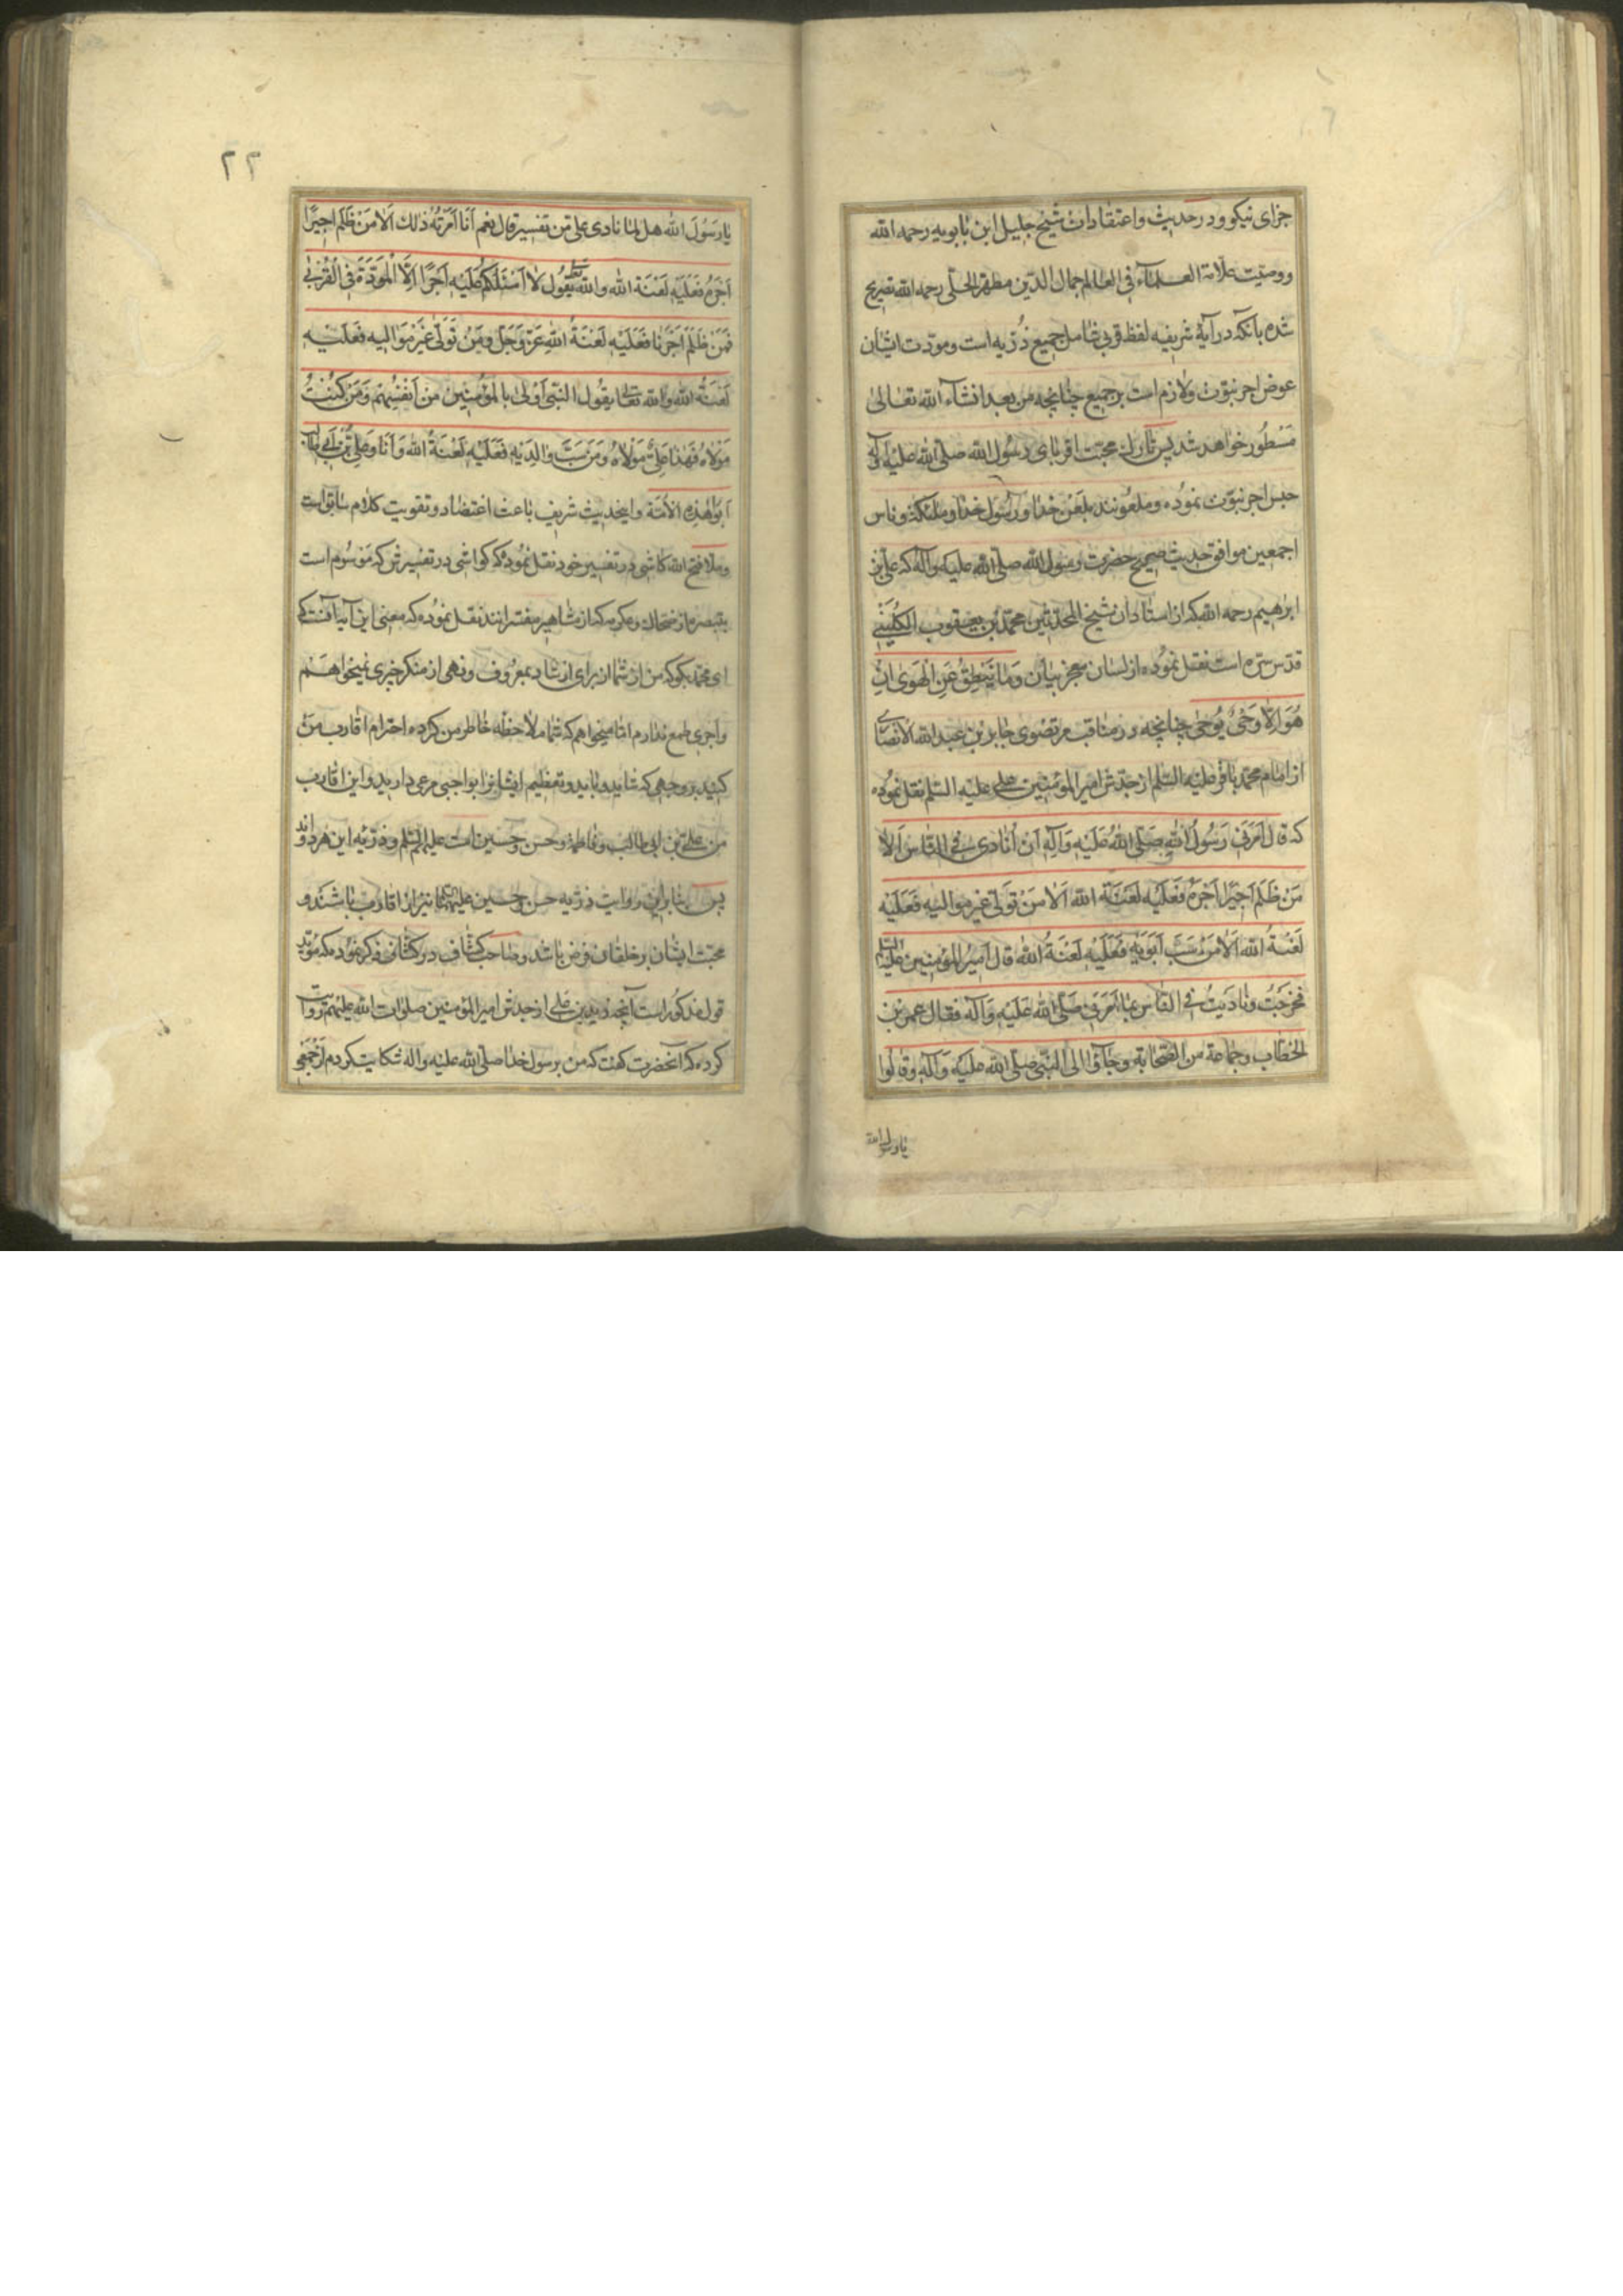 جزای نیکو ودر حدیث واعتقادات شیخ جلیل ابن بابویه رحمه الله
ووصیت علامة العلمآء فی العالم جمال الدین مطهر الحلی رحمه الله تصریح
شده بآنکه در آیهٔ شریفه لفظ قربی شامل جمیع ذریه است ومودت ایشان
عوض اجر نبوت ولازم است بر جمیع چنانچه من بعد انشآء الله تعالی
مسطور خواهد شد پس تارک محبت اقربای رسول الله صلی الله علیه وآله
حبس اجر نبوت نموده وملعونند بلعن خدا ورسول خدا وملئکة وناس
اجمعین موافق حدیث صحیح حضرت رسول الله صلی الله علیه وآله که علی بن
ابرهیم رحمه الله که از استادان شیخ المحدثین محمد بن یعقوب الکلینی
قدس سره است نقل نموده از لسان معجز بیان وَمَا یَنْطِقُ عَنِ الْهَوی اِنْ
هُوَ اِلّا وَحْیٌ یُوحی چنانچه در مناقب مرتضوی جابر بن عبد الله الانصاری
از امام محمد باقر علیه السلم از جدش امیر المؤمنین علی علیه السلم نقل نموده
که قال اَمَرَنی رَسُولُ اللهِ صَلّی اللهُ عَلَیْهِ وَآلِهِ اَنْ اُنادی فی النّاسِ اَلا
مَنْ ظَلَمَ اَجیرًا اَجْرَهُ فَعَلَیْهِ لَعْنَةُ اللهِ اَلا مَنْ تَوَلّی غیر موالیه فَعَلَیْهِ
لَعْنَةُ الله اَلا مَنْ سَبَّ اَبَوَیْهِ فَعَلَیْهِ لَعْنَةُ اللهِ قال اَمیرُ المؤمنین علیه السلم
فَخَرَجْتُ ونادَیتُ فی النّاسِ بما اَمَرَنی صَلّی اللهُ عَلَیْهِ وَآلِهِ فقال عمر بن
الخطاب وجماعة من الصّحابة وجاؤا الی النّبی صلّی الله علیه وَآلِهِ وقالوا
یا رسول الله
۲۲
یا رَسُولَ الله هل لما نادی علی مِن تفسیر قال نعم اَنَا اَمَرْتُهُ ذلك اَلا مَنْ ظَلَمَ اَجیرًا
اَجْرَهُ فَعَلَیْهِ لَعْنَةُ الله والله تعالی یَقُول لا اَسْئَلُکُمْ عَلَیْهِ اَجْرًا اِلّا الْمَوَدَّةَ فِی الْقُرْبی
فَمَنْ ظَلَمَ اَجْرَنا فَعَلَیْهِ لَعْنَةُ اللهِ عَزَّ وَجَلَّ ومَنْ تَوَلّی غَیْرَ مَوَالیه فَعَلَیْهِ
لَعْنَةُ الله والله تعالی یقُول النّبی اَوْلی بالمؤمنین مِنْ اَنْفُسِهِمْ وَمَنْ کُنْتُ
مَوْلاهُ فَهذا عَلیٌ مَوْلاهُ وَمَنْ سَبَّ والِدَیْهِ فَعَلَیْهِ لَعْنَةُ الله وَاَنَا وَعَلِیُّ بْنُ اَبی طالب
اَبَوا هذِهِ الاُمّة واینحدیث شریف باعث اعتضاد وتقویت کلام سابق است
وملا فتح الله کاشی در تفسیر خود نقل نموده که کواشی در تفسیرش که موسوم است
بتبصره از ضحاك وعکرمه که از مشاهیر مفسرانند نقل نموده که معنی این آیه آنست که
ای محمد بکو که من از شما از برای ارشاد بمعروف ونهی از منکر چیزی نمیخواهم
واجری طمع ندارم اما میخواهم که شما ملاحظه خاطر من کرده احترام اقارب من
کنید بر وجهی که شاید وباید وتعظیم ایشانرا بواجبی مرعی دارید واین اقارب
من علی بن ابی طالب وفاطمه وحسن وحسین است علیهم السلم وذریه این هر دواند
پس بنا براین روایت ذریه حسن وحسین علیهما نیز از اقارب باشند و
محبت ایشان بر خلقان فرض باشد وصاحب کشاف در کشاف ذکر نموده که مؤید
قول مذکور است آنچه زید بن علی از جدش امیر المؤمنین صلوات الله علیهم روایت
کرده که آنحضرت کفت که من برسول خدا صلی الله علیه واله شکایت کردم از جمعی